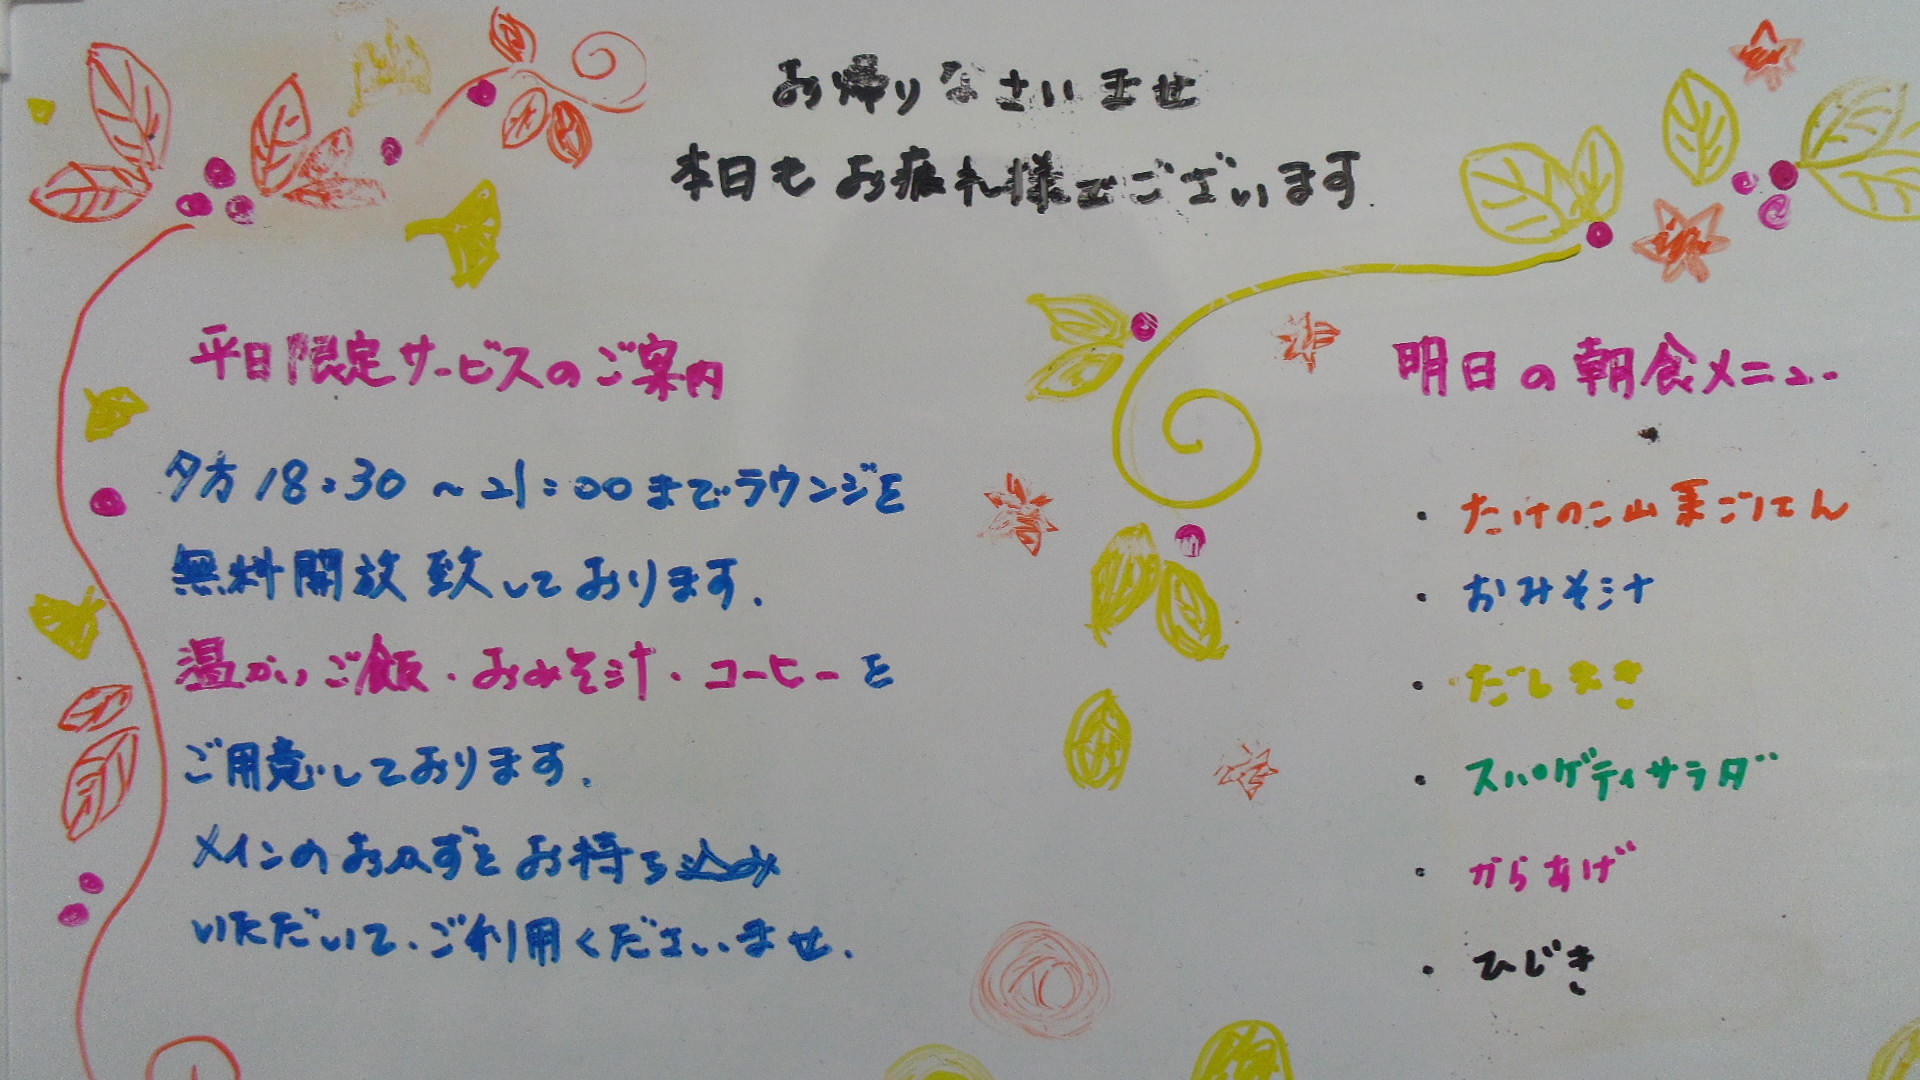 お帰りなさいませ
本日もお疲れ様でございます.
平日限定サービスのご案内
夕方18:30~21:00までラウンジを
無料開放致しております.
温かいご飯・おみそ汁・コーヒーを
ご用意しております.
メインのおかずをお持ち込み
いただいて、ご利用くださいませ.
明日の朝食メニュー
・たけのこ山菜ごはん
・おみそ汁
・だしまき
・スパゲティサラダ
・からあげ
・ひじき